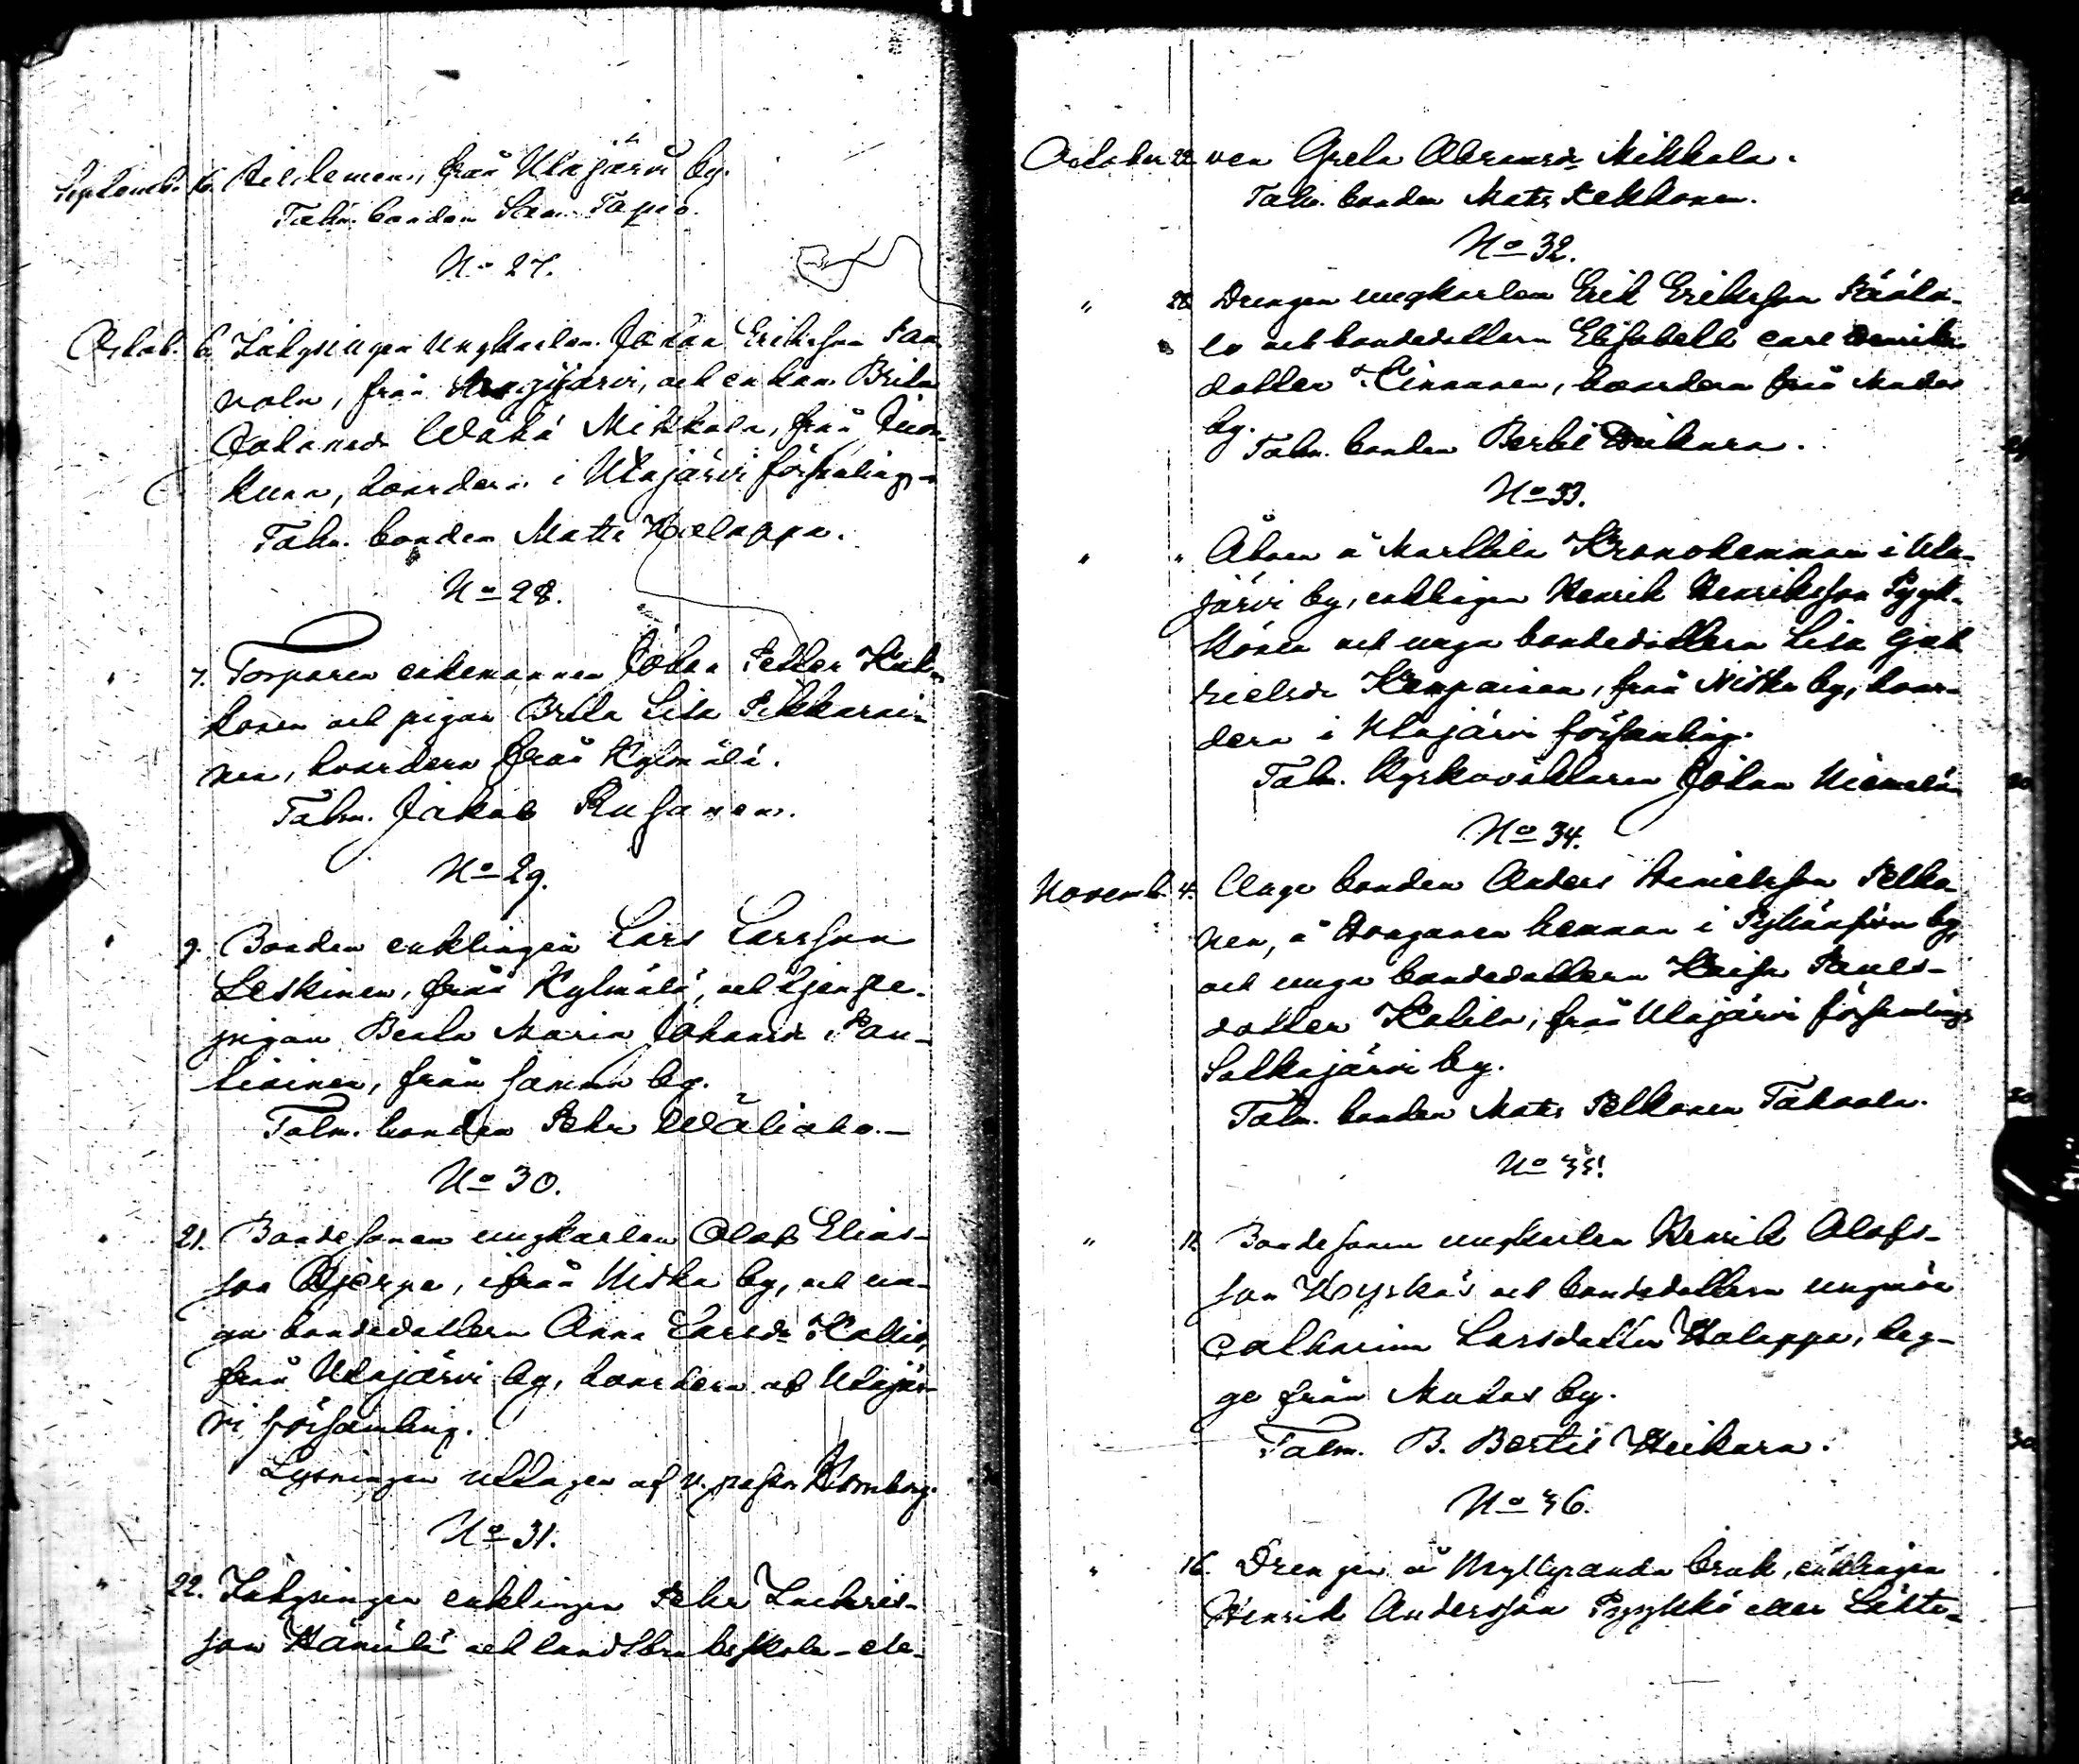 Septemb. 16. Heiskanen, från Utajärvi by.
Talm. bonden Sam. Tapio.
No 27.
Octob. 6. Inhysingen Ungkarlen Johan Eriksson Pau
nola, från och enkan Brita
Johansdr Wähä Mikkala, från
kunn, hvardera i Utajärvi församling
Talm. bonden Matts Holappa.
No 28.
" 7. Torparen enkemannen Johan Petter Kuk
konen och pigan Brita Lisa Pikkarai-
nen, hvardera från Kylmälä.
Talm. Jakob Rusanen.
No 29.
" 9. Bonden enklingen Lars Larsson
Leskinen, från Kylmälä, och tjenste-
pigan Beata Maria Johansdr Pau-
liainen, från samma by.
Talm. bonden Pehr Wäliaho.-
No 30.
" 21. Bondesonen ungkarlen Olof Elias-
son Kjerpe, ifrån Niska by, och un-
ga bondedottern Anna Larsdr Kallio,
från Utajärvi by, hvardera af Utajär-
vi församling.
Lysningen uttagen af v. pastor Hornborg.
No 31.
" 22. Inhysingen enklingen Pehr Zachris-
son Hämälä och landtbruksskole-ele-
October 22. ven Greta Abramsdr Mikkala.
Talm. bonden Mats Pekkonen.
No 32.
" 28. Drengen ungkarlen Erik Eriksson Pääta-
lo och bondedottern Elisabeth Carl Henriks
dotter Kinnunen, hvardera från Muhos
by.
Talm. bonden Bertil Heikura.
No 33.
" " Åboen å Marttila Kronohemman i Uta-
järvi by, enklingen Henrik Henriksson Pyyk-
könen och unga bondedottern Lisa Gab
rielsdr Kemppainen, från Niska by, hvar-
dera i Utajärvi församling.
Talm. Kyrkoväktaren Johan Niemelä
No 34.
Novemb. 4. Unge bonden Anders Danielsson Pelko
nen, å Honganen hemman i Pyhänsivu by,
och unga bondedottern Kaisa Pauls-
dotter Kalila, från Utajärvi församlings
Salkajärvi by.
Talm. bonden Mats Pelkonen Tahvola.
No 35.
" 12. Bondesonen ungkarlen Henrik Olofs-
son Hyrkäs och bondedottern ungmön
Catharina Larsdotter Holappa, beg-
ge från Muhos by.
Talm. B. Bertil Heikura.
No 36.
" 16. Drengen å Myllyranda bruk, enklingen
Henrik Andersson Pyykkö eller Lähte-